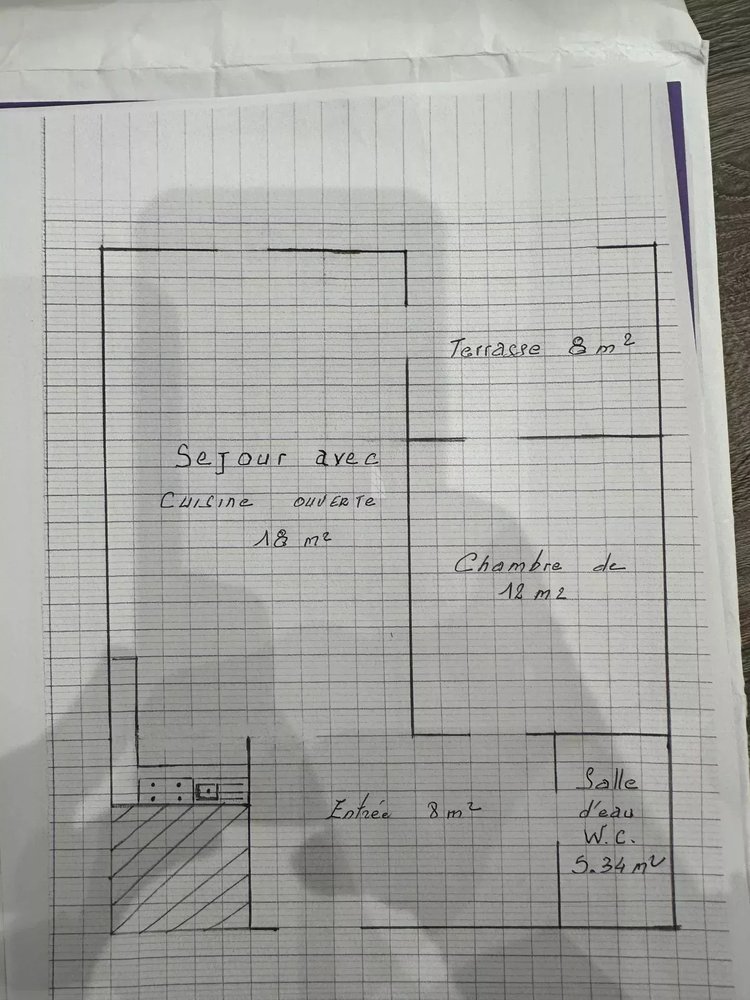 Terrasse 8 m²
Sejour avec
Cuisine ouverte
18 m²
Chambre de
12 m2
Salle
d'eau
W.C.
5.34 m²
Entrée 8 m²